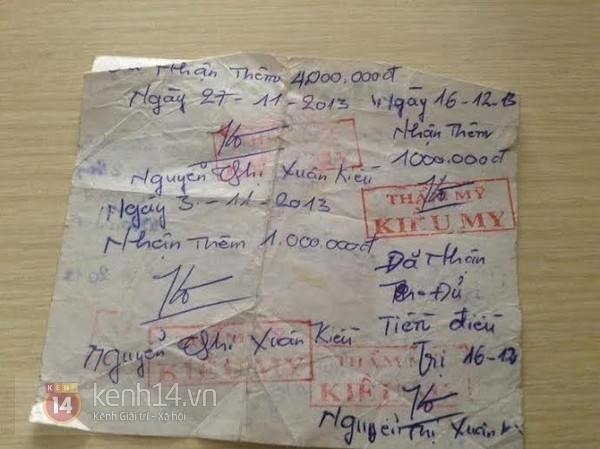 Đã Nhận Thêm 4000.000đ
Ngày 27-11-2013
Nguyễn Thị Xuân Kiều
Ngày 3-11-2013
Nhận Thêm 1.000.000đ
Nguyễn Thị Xuân Kiều
KIỀU MY
Ngày 16-12-13
Nhận Thêm
1000.000đ
THẨM MỸ
KIỀU MY
Đã Nhận
Đủ
Tiền điều
Trị 16-12
THẨM
KIỀU
Nguyễn Thị Xuân
KENH
14
kenh14.vn
Kênh Giải trí - Xã hội